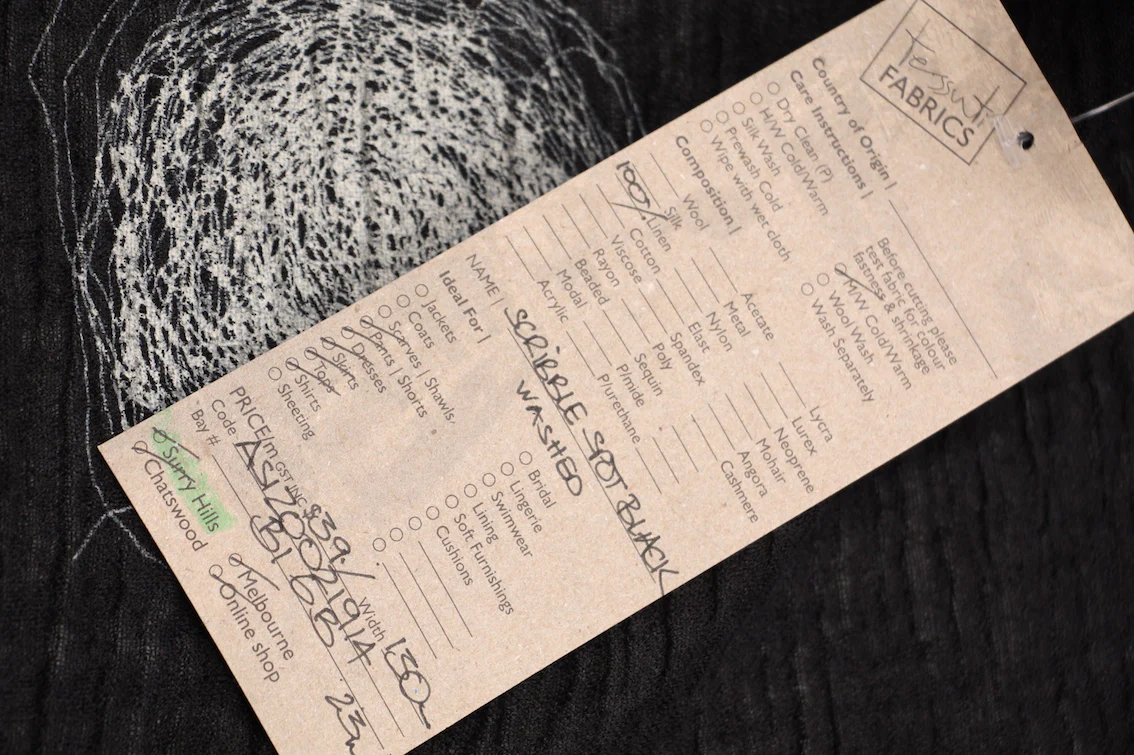 Tessuti
FABRICS
Country of Origin |
Care Instructions |
Dry Clean (P)
H/W Cold/Warm
Silk Wash
Prewash Cold
Wipe with wet cloth
Before cutting please
test fabric for colour
fastness & shrinkage
M/W Cold/Warm
Wool Wash
Wash Separately
Composition |
Wool
Silk
100% Linen
Cotton
Viscose
Rayon
Beaded
Modal
Acrylic
Acetate
Metal
Nylon
Elast
Spandex
Poly
Sequin
P/mide
P/urethane
Lycra
Lurex
Neoprene
Mohair
Angora
Cashmere
NAME | SCRIBBLE SPOT BLACK
WASHED
Ideal For |
Jackets
Coats
Scarves | Shawls
Pants | Shorts
Dresses
Skirts
Tops
Shirts
Sheeting
Bridal
Lingerie
Swimwear
Lining
Soft Furnishings
Cushions
PRICE/m GST INC $39/ Width 130
Code
Bay #
Surry Hills
Chatswood
Melbourne
Online shop